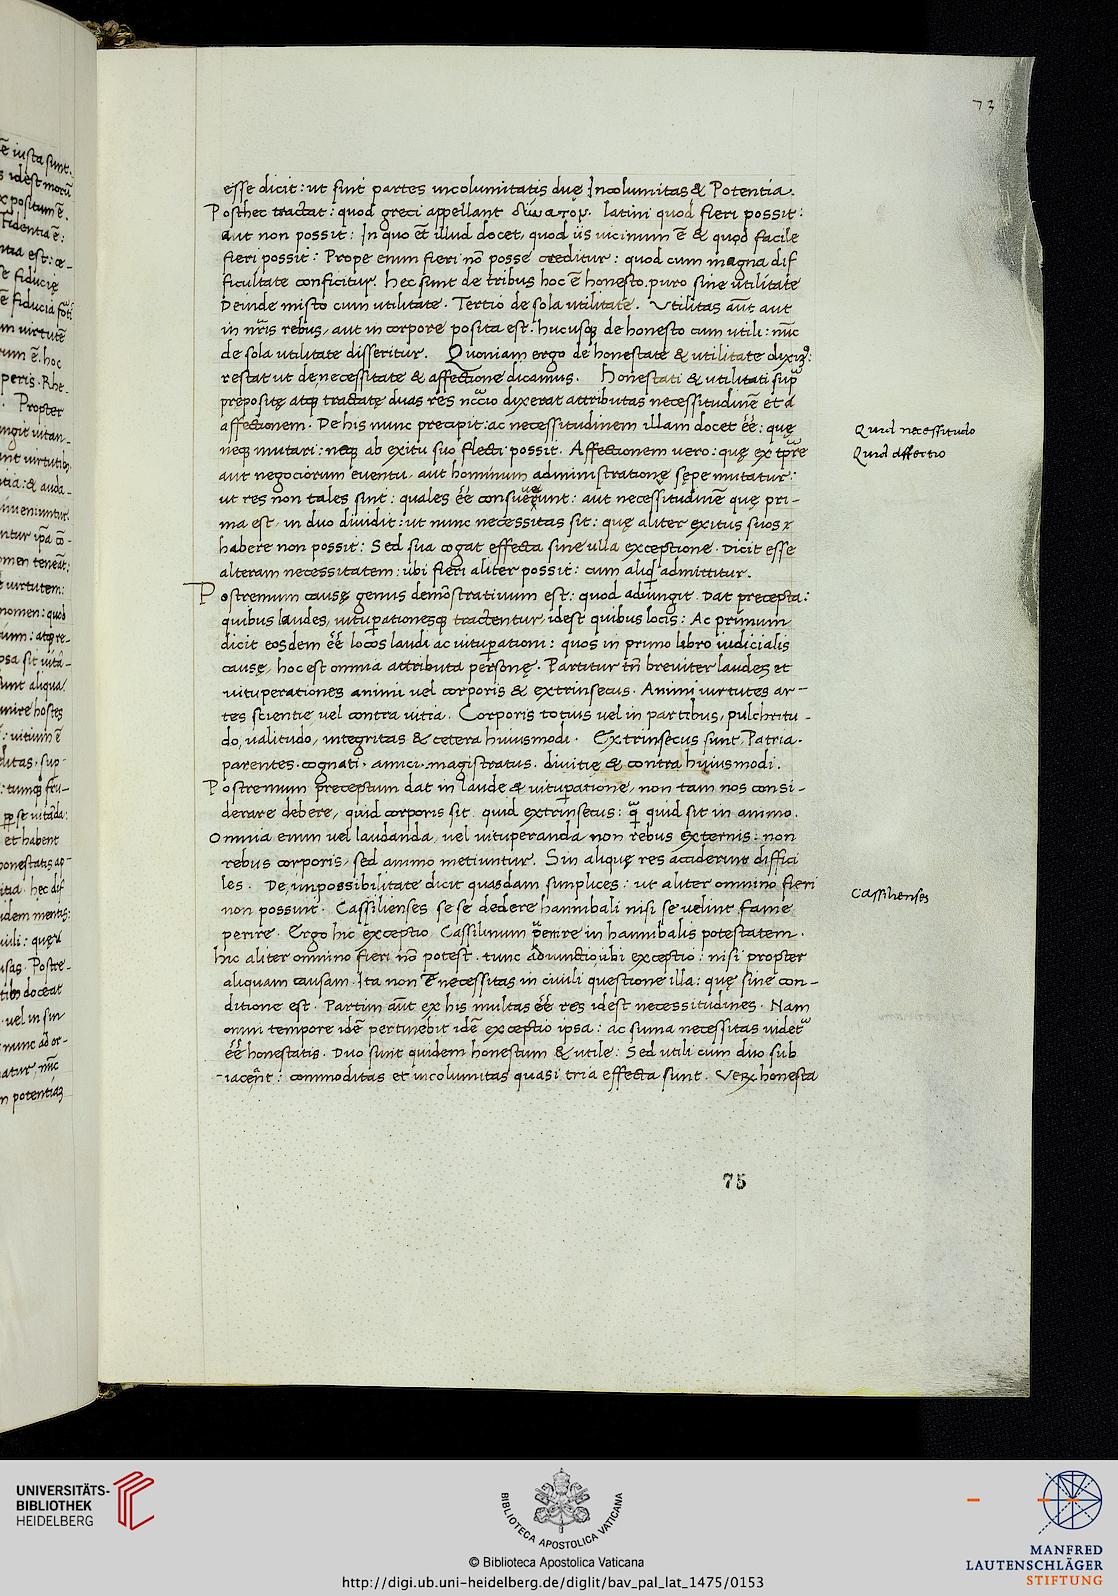 73
esse dicit: ut sint partes incolumitatis duę Incolumitas & Potentia.
Posthec tractat: quod greci appellant latini quod fieri possit:
aut non possit: In quo et̃ illud docet, quod iis uicinum ẽ & quod facile
fieri possit: Prope enim fieri nõ posse creditur: quod cum magna dif
ficultate conficitur. hec sunt de tribus hoc ẽ honesto puro sine utilitate
Deinde misto cum utilitate. Tertio de sola utilitate. Utilitas aũt aut
in nr̃is rebus, aut in corpore posita est. hucusqꝫ de honesto cum utili: nũc
de sola utilitate disseritur. Quoniam ergo de honestate & utilitate
restat ut de necessitate & affectione dicamus. Honestati & utilitati
prepositę atqꝫ tractatę duas res dixerat attributas necessitudinẽ et
affectionem. De his nunc precipit: ac necessitudinem illam docet ẽẽ: quę
neqꝫ mutari: neqꝫ ab exitu suo flecti possit. Affectionem uero: quę ex tp̃re
aut negociorum euentu, aut hominum administratione sępe mutatur:
ut res non tales sint: quales ẽẽ aut necessitudinẽ quę pri-
ma est, in duo diuidit: ut nunc necessitas sit: quę aliter exitus suos
habere non possit: Sed sua cogat effecta sine ulla exceptione. Dicit esse
alteram necessitatem: ubi fieri aliter possit: cum aliqd admittitur.
Postremum causę genus demõstratiuum est: quod adiungit. Dat precepta:
quibus laudes, uitupationesqꝫ tractentur, idest quibus locis: Ac primum
dicit eosdem ẽẽ locos laudi ac uitupationi: quos in primo libro iudicialis
causę, hoc est omnia attributa personę. Partitur tñ breuiter laudes et
uituperationes animi uel corporis & extrinsecus. Animi uirtutes ar-
tes scientię uel contra uitia. Corporis totius uel in partibus, pulchritu-
do, ualitudo, integritas & cetera huiusmodi. Extrinsecus sunt, Patria.
parentes. cognati. amici. magistratus. diuitię & contra huiusmodi.
Postremum preceptum dat in laude & uitupatione, non tam nos consi-
derare debere, quid corporis sit quid extrinsecus: quid sit in animo.
Omnia enim uel laudanda, uel uituperanda non rebus externis: non
rebus corporis, sed animo metiuntur. Sin aliquę res acciderint diffici
les. De impossibilitate dicit quasdam simplices: ut aliter omnino fieri
non possint. Cassilienses se se dedere hannibali nisi se uelint fame
perire. Ergo hic exceptio, Cassilinum in hannibalis potestatem.
hic aliter omnino fieri nõ potest. tunc adiunctio, ubi exceptio: nisi propter
aliquam causam. Ita non ẽ necessitas in ciuili questione illa: quę sine con-
ditione est. Partim aũt ex his multas ẽẽ res idest necessitudines. Nam
omni tempore idẽ pertinebit idẽ exceptio ipsa: ac suma necessitas uidet᷑
ẽẽ honestatis. Duo sunt quidem honestum & utile: Sed utili cum duo sub
iaceãt: commoditas et incolumitas quasi tria effecta sunt. Veꝝ honesta
Quid necessitudo
Quid affectio
Cassilienses
75
UNIVERSITÄTS-
BIBLIOTHEK
HEIDELBERG
BIBLIOTECA APOSTOLICA VATICANA
© Biblioteca Apostolica Vaticana
http://digi.ub.uni-heidelberg.de/diglit/bav_pal_lat_1475/0153
MANFRED
LAUTENSCHLÄGER
STIFTUNG